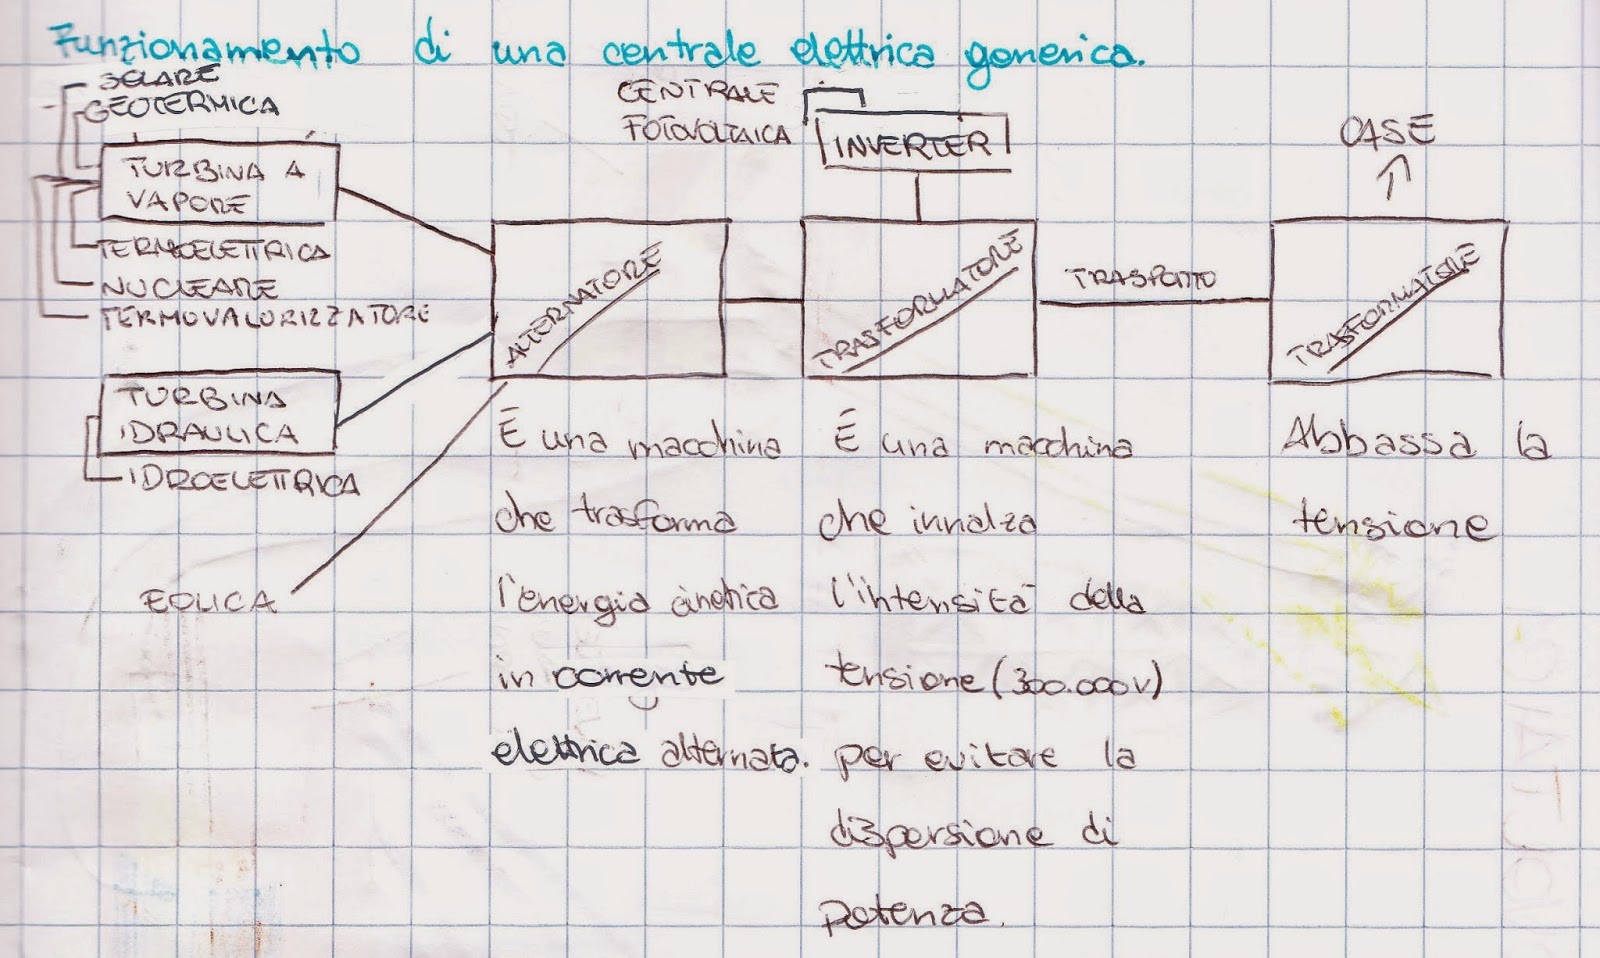 Funzionamento di una centrale elettrica generica.
SOLARE
GEOTERMICA
TURBINA A
VAPORE
TERMOELETTRICA
NUCLEARE
TERMOVALORIZZATORE
TURBINA
IDRAULICA
IDROELETTRICA
EOLICA
ALTERNATORE
È una macchina
che trasforma
l'energia cinetica
in corrente
elettrica alternata.
CENTRALE
FOTOVOLTAICA
INVERTER
TRASFORMATORE
È una macchina
che innalza
l'intensità della
tensione (300.000V)
per evitare la
dispersione di
potenza.
TRASPORTO
CASE
TRASFORMATORE
Abbassa la
tensione